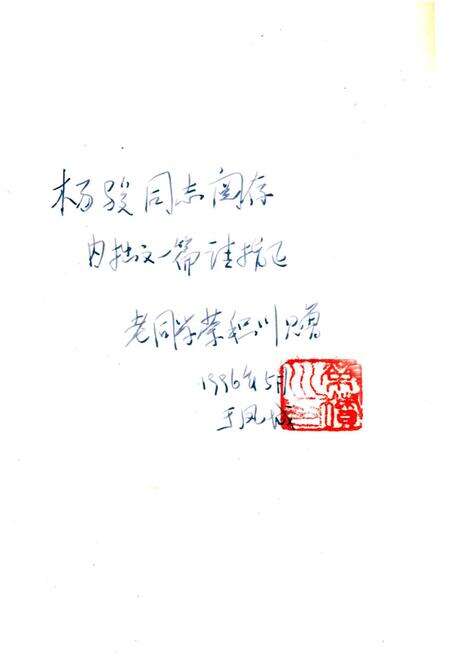 杨骏同志阅存
内拙文一篇请指正
老同学荣积川赠
1996年5月
于凤城